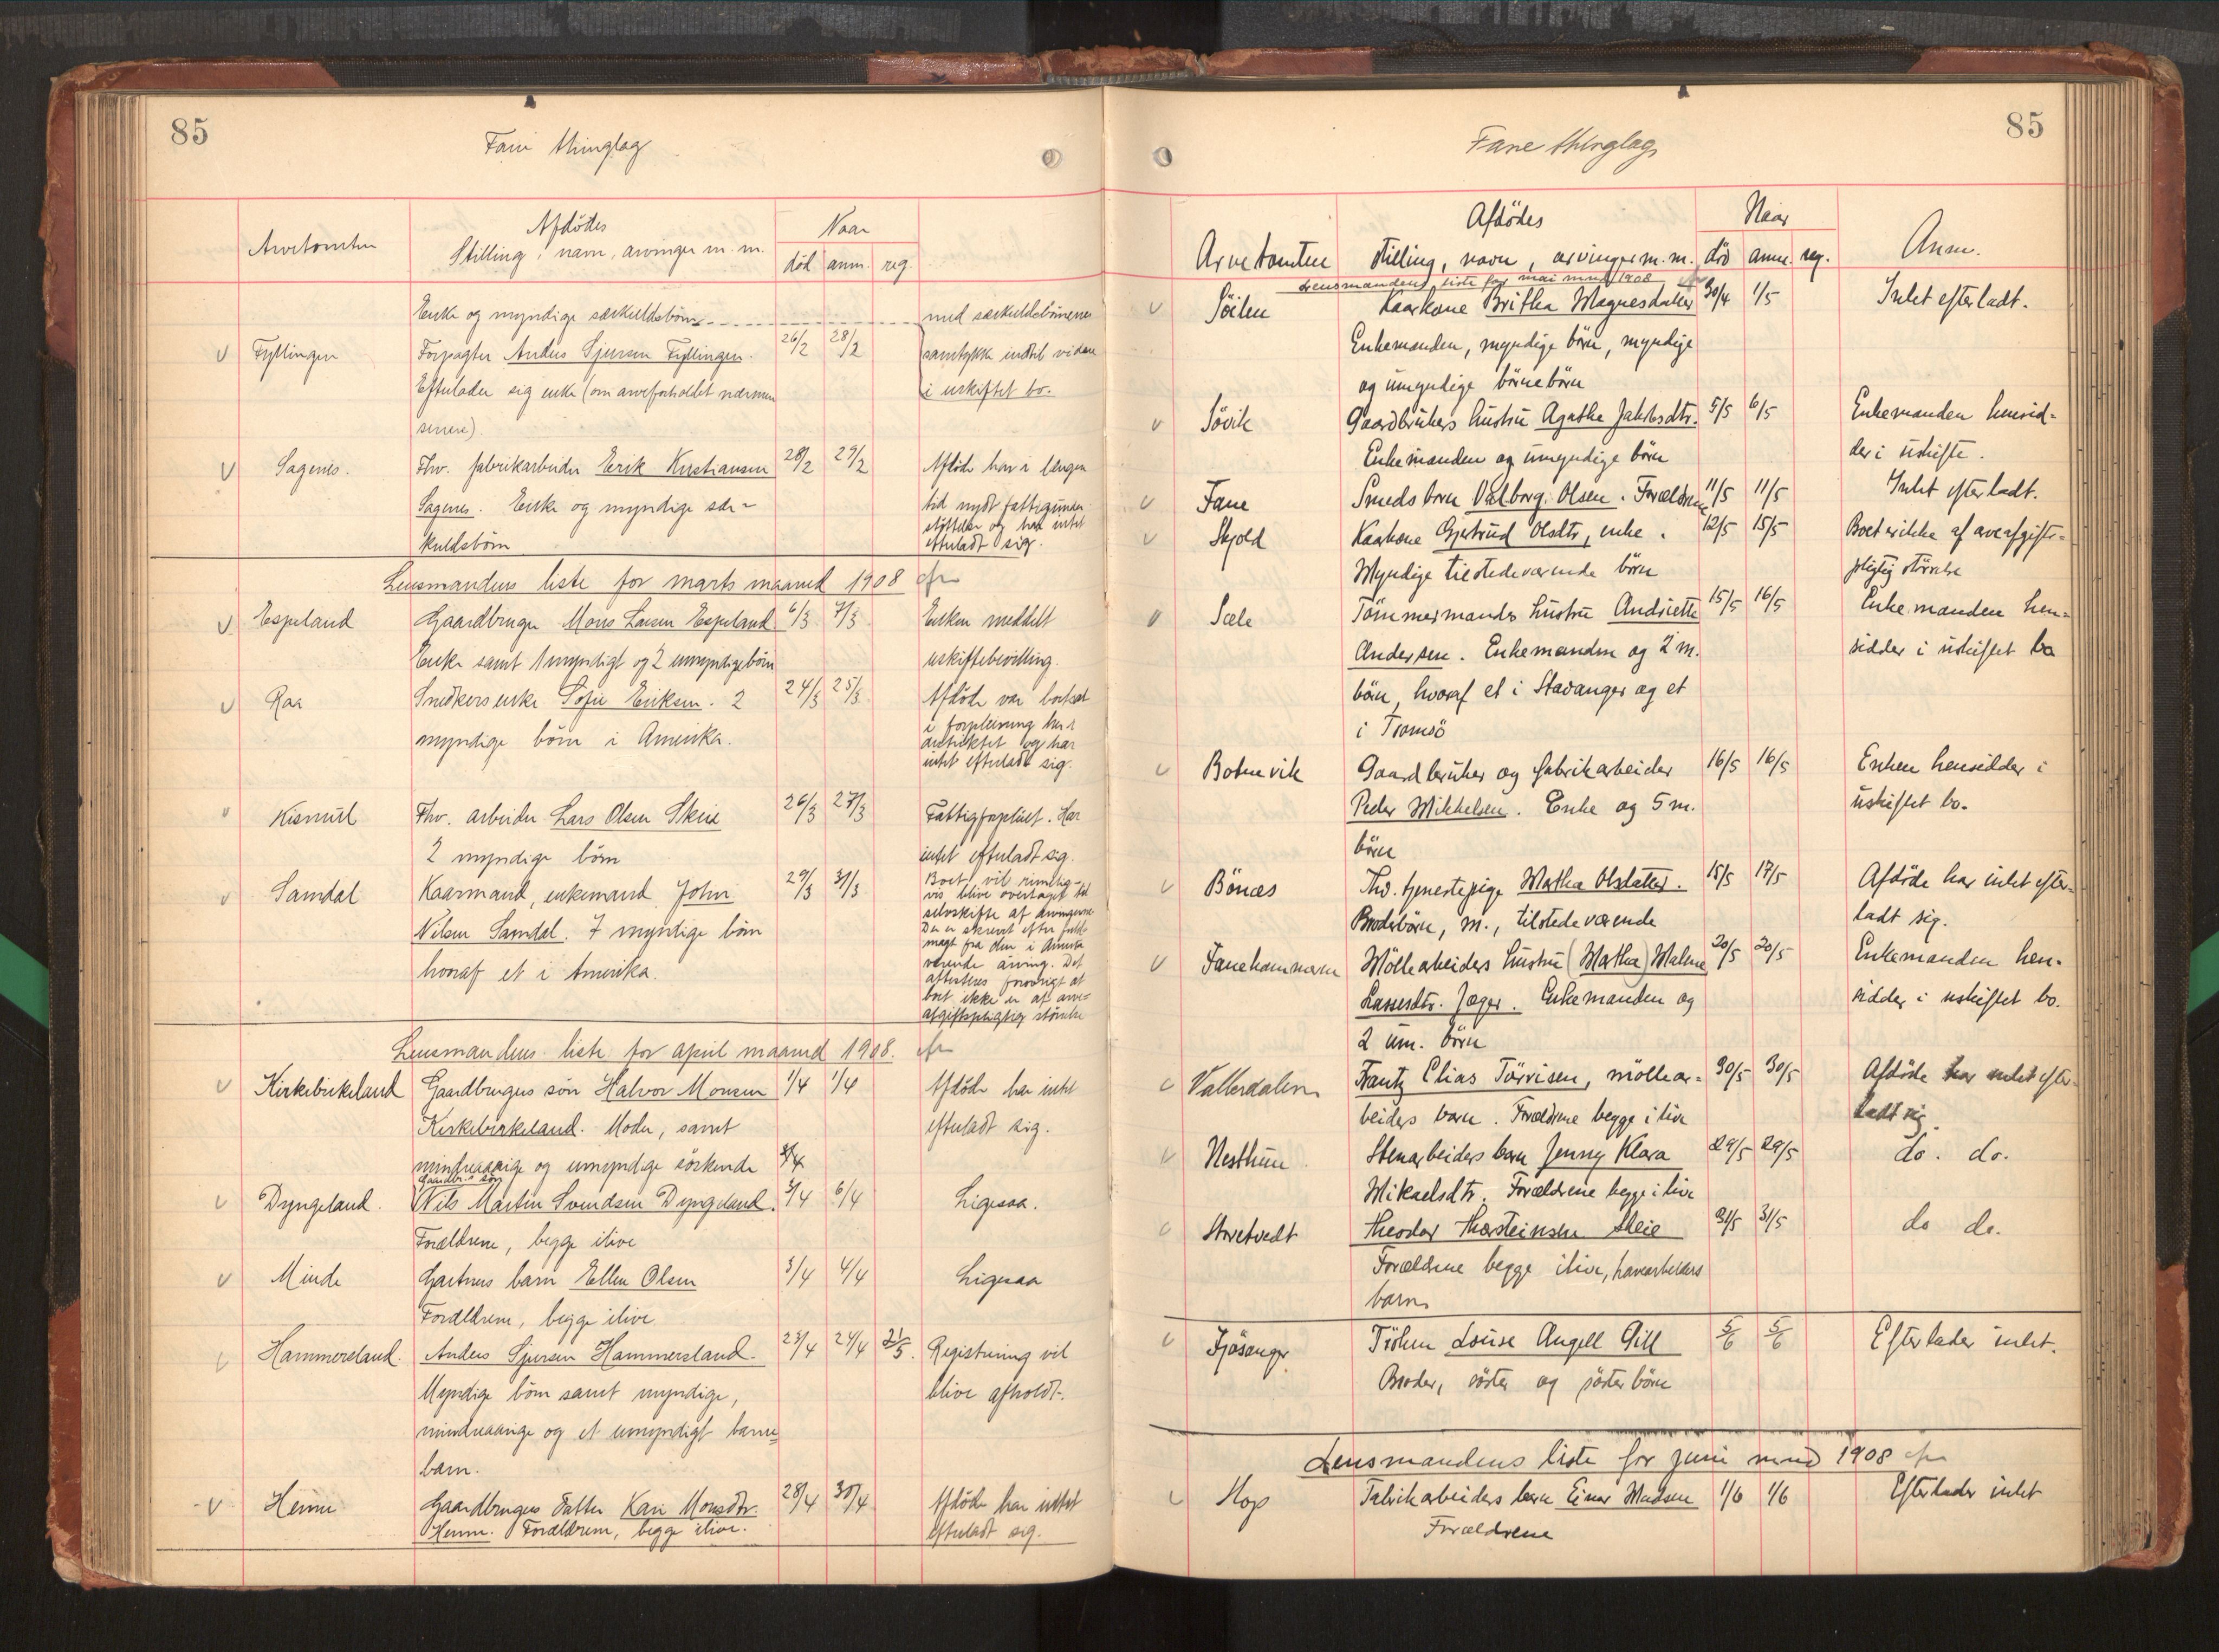 85
Fane thinglag
Arvetomten
Afdödes
Stilling, navn, arvinger m. m.
Naar
död anm. reg.
Enke og myndige særkuldsbörn med særkuldsbörnenes
Fyllingen Forpagter Anders Sjursen Fyllingen. 26/2 28/2 samtykke indtil videre
Efterlader sig enke (om arveforholdet nærmere i uskiftet bo.
senere)
Sagenes. Fhv. fabrikarbeider Erik Kristiansen 28/2 29/2 Afdöde har i længere
Sagenes. Enke og myndige sær= tid nydt fattigunder
kuldsbörn støttelse og har intet
efterladt sig.
Lensmandens liste for marts maaned 1908
Espeland Gaardbruger Mons Larsen Espeland. 6/3 7/3 Enken meddelt
Enke samt 1 myndigt og 2 umyndige börn uskiftebevilling.
Raa Snedkers enke Sofie Eriksen. 2 24/3 25/3 Afdöde var bortsat
myndige börn i Amerika. i forpleining her i
distriktet og har
intet efterladt sig.
Kismul Fhv. arbeider Lars Olsen Skeie 26/3 27/3 Fattigforpleiet. Har
2 myndige börn intet efterladt sig.
Samdal Kaarmand, enkemand John 29/3 31/3 Boet vil rimelig-
Nilsen Samdal. 7 myndige börn vis blive overtaget til
hvoraf et i Amerika. selvskifte af arvingerne
Der er skrevet efter fuld-
magt fra den i Amerika
værende arving. Det
attesteres forøvrigt at
boet ikke er af arve=
afgiftspligtig størrelse
Lensmandens liste for april maaned 1908.
Kirkebirkeland Gaardbrugers sön Halvor Monsen 1/4 1/4 Afdöde har intet
Kirkebirkeland. Moder, samt efterladt sig.
mindreaarige og umyndige söskende
Gaardbr.s sön
Dyngeland. Nils Martin Svendsen Dyngeland. 3/4 6/4 Ligesaa.
Forældrene, begge ilive
Minde Gartners barn Ellen Olsen 3/4 4/4 Ligesaa
Forældrene, begge ilive
Hammersland. Anders Sjursen Hammersland. 23/4 24/4 21/5. Registrering vil
Myndige börn samt myndige, blive afholdt.
mindreaarige og et umyndigt barne=
barn.
Henne Gaardbrugers datter Kari Monsdtr. 28/4 30/4 Afdöde har intet
Henne. Forældrene, begge ilive. efterladt sig.
85
Fane thinglag
Arvetomten
Afdödes
stilling, navn, arvinger m. m.
Naar
död anm. reg.
Anm.
Lensmandens liste for mai mnd 1908
Söilen Kaarkone Britha Magnesdatter 30/4 1/5 Intet efterladt.
Enkemanden, myndige börn, myndige
og umyndige börnebörn
Sövik Gaardbrukers hustru Agathe Jakobsdtr. 5/5 6/5 Enkemanden hensid=
Enkemanden og umyndige börn der i uskifte.
Fane Smeds barn Valborg Olsen. Forældrene 11/5 11/5 Intet efterladt.
Skjold Kaarkone Gjertrud Olsdtr, enke. 12/5 15/5 Boet er ikke af arveafgifts=
Myndige tilstedeværende börn pligtig störrelse
Sæle Tömmermands hustru Andriette 15/5 16/5 Enkemanden hen=
Andersen. Enkemanden og 2 m. sidder i uskiftet bo
börn, hvoraf et i Stavanger og et
i Tromsö
Botnevik Gaardbruker og fabrikarbeider 16/5 16/5 Enken hensidder i
Peder Mikkelsen. Enke og 5 m. uskiftet bo.
börn
Bönæs Fhv. tjenestepige Martha Olsdatter. 15/5 17/5 Afdöde har intet efter=
Broderbörn, m., tilstedeværende ladt sig.
Fanehammeren Möllearbeiders hustru (Martha) Malene 20/5 20/5 Enkemanden hen=
Lassesdtr. Jæger. Enkemanden og sidder i uskiftet bo.
2 um. börn
Vallerdalen Frantz Elias Törrisen, möllear= 30/5 30/5 Afdöde har intet efter=
beiders barn. Forældrene begge i live ladt sig.
Nesttun Stenarbeiders barn Jenny Klara 29/5 29/5 do. do.
Mikaelsdtr. Forældrene begge i live
Storetvedt Theodor Thorsteinsen Skeie 31/5 31/5 do do.
Forældrene begge ilive,
barn
Fjösanger Fröken Louise Angell Gill 5/6 5/6 Efterlader intet.
Broder, söster og sösterbörn
Lensmandens liste for juni mnd 1908
Hop Fabrikarbeiders barn Einar Madsen 1/6 1/6 Efterlader intet
Forældrene